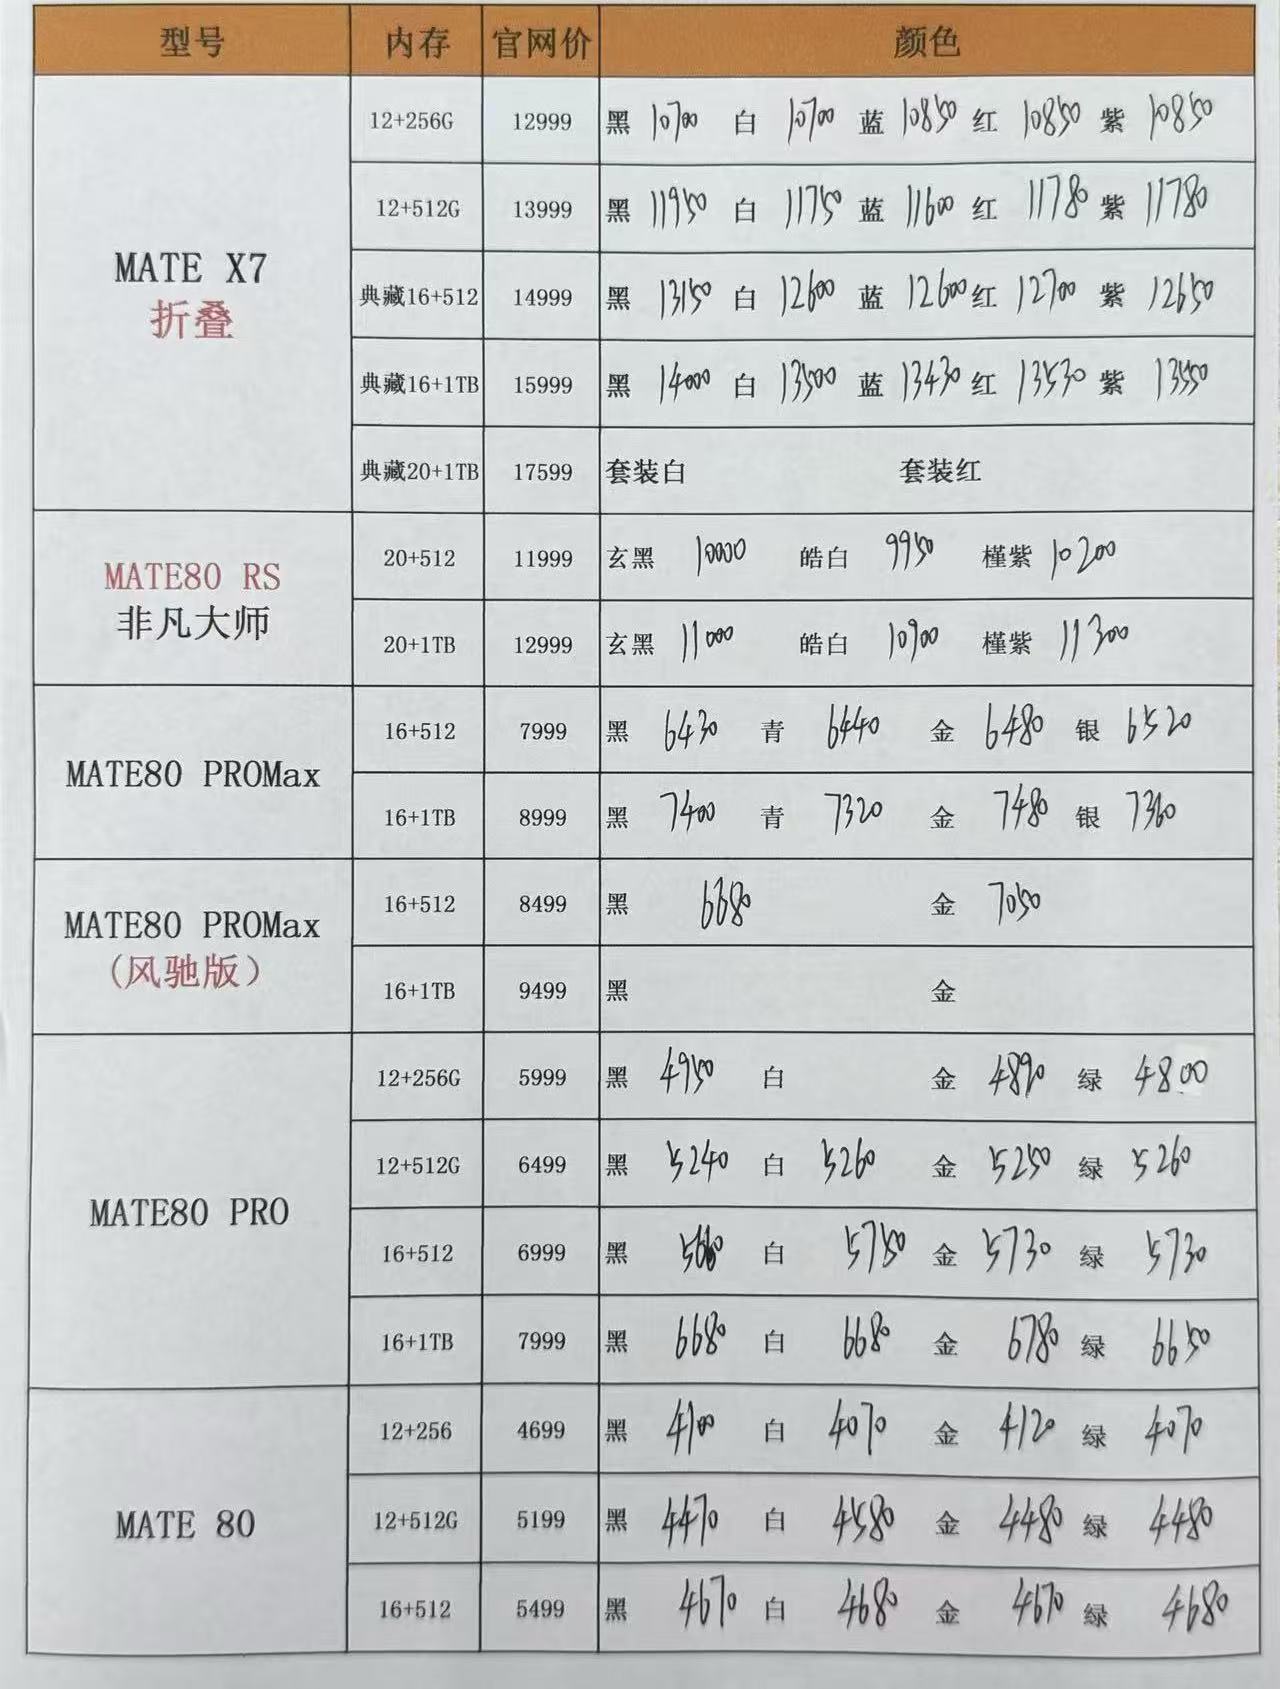 型号 内存 官网价 颜色
12+256G 12999 黑 10700 白 10700 蓝 10850 红 10850 紫 10850
12+512G 13999 黑 11950 白 11750 蓝 11600 红 11780 紫 11780
MATE X7
折叠
典藏16+512 14999 黑 13150 白 12600 蓝 12600 红 12700 紫 12650
典藏16+1TB 15999 黑 14000 白 13500 蓝 13430 红 13530 紫 13550
典藏20+1TB 17599 套装白 套装红
MATE80 RS
非凡大师
20+512 11999 玄黑 10000 皓白 9950 槿紫 10200
20+1TB 12999 玄黑 11000 皓白 10900 槿紫 11300
MATE80 PROMax
16+512 7999 黑 6430 青 6440 金 6480 银 6520
16+1TB 8999 黑 7400 青 7320 金 7480 银 7360
MATE80 PROMax
(风驰版)
16+512 8499 黑 6680 金 7050
16+1TB 9499 黑 金
MATE80 PRO
12+256G 5999 黑 4950 白 金 4890 绿 4800
12+512G 6499 黑 5240 白 5260 金 5250 绿 5260
16+512 6999 黑 白 5750 金 5730 绿 5730
16+1TB 7999 黑 6680 白 6680 金 6780 绿 6650
MATE 80
12+256 4699 黑 4100 白 4070 金 4120 绿 4070
12+512G 5199 黑 4470 白 4580 金 4480 绿 4480
16+512 5499 黑 4670 白 4680 金 4670 绿 4680